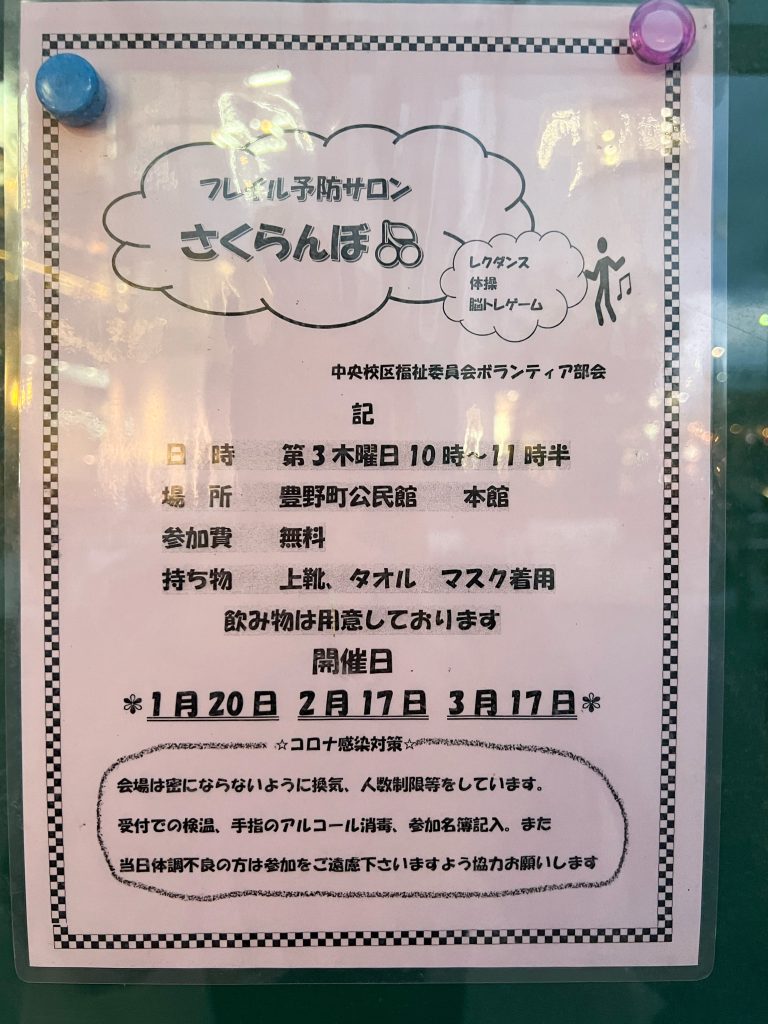 フレイル予防サロン
さくらんぼ
レクダンス
体操
脳トレゲーム
中央校区福祉委員会ボランティア部会
記
日　時　第3木曜日10時～11時半
場　所　豊野町公民館　本館
参加費　無料
持ち物　上靴、タオル　マスク着用
飲み物は用意しております
開催日
＊1月20日 2月17日 3月17日＊
☆コロナ感染対策☆
会場は密にならないように換気、人数制限等をしています。
受付での検温、手指のアルコール消毒、参加名簿記入。また
当日体調不良の方は参加をご遠慮下さいますよう協力お願いします